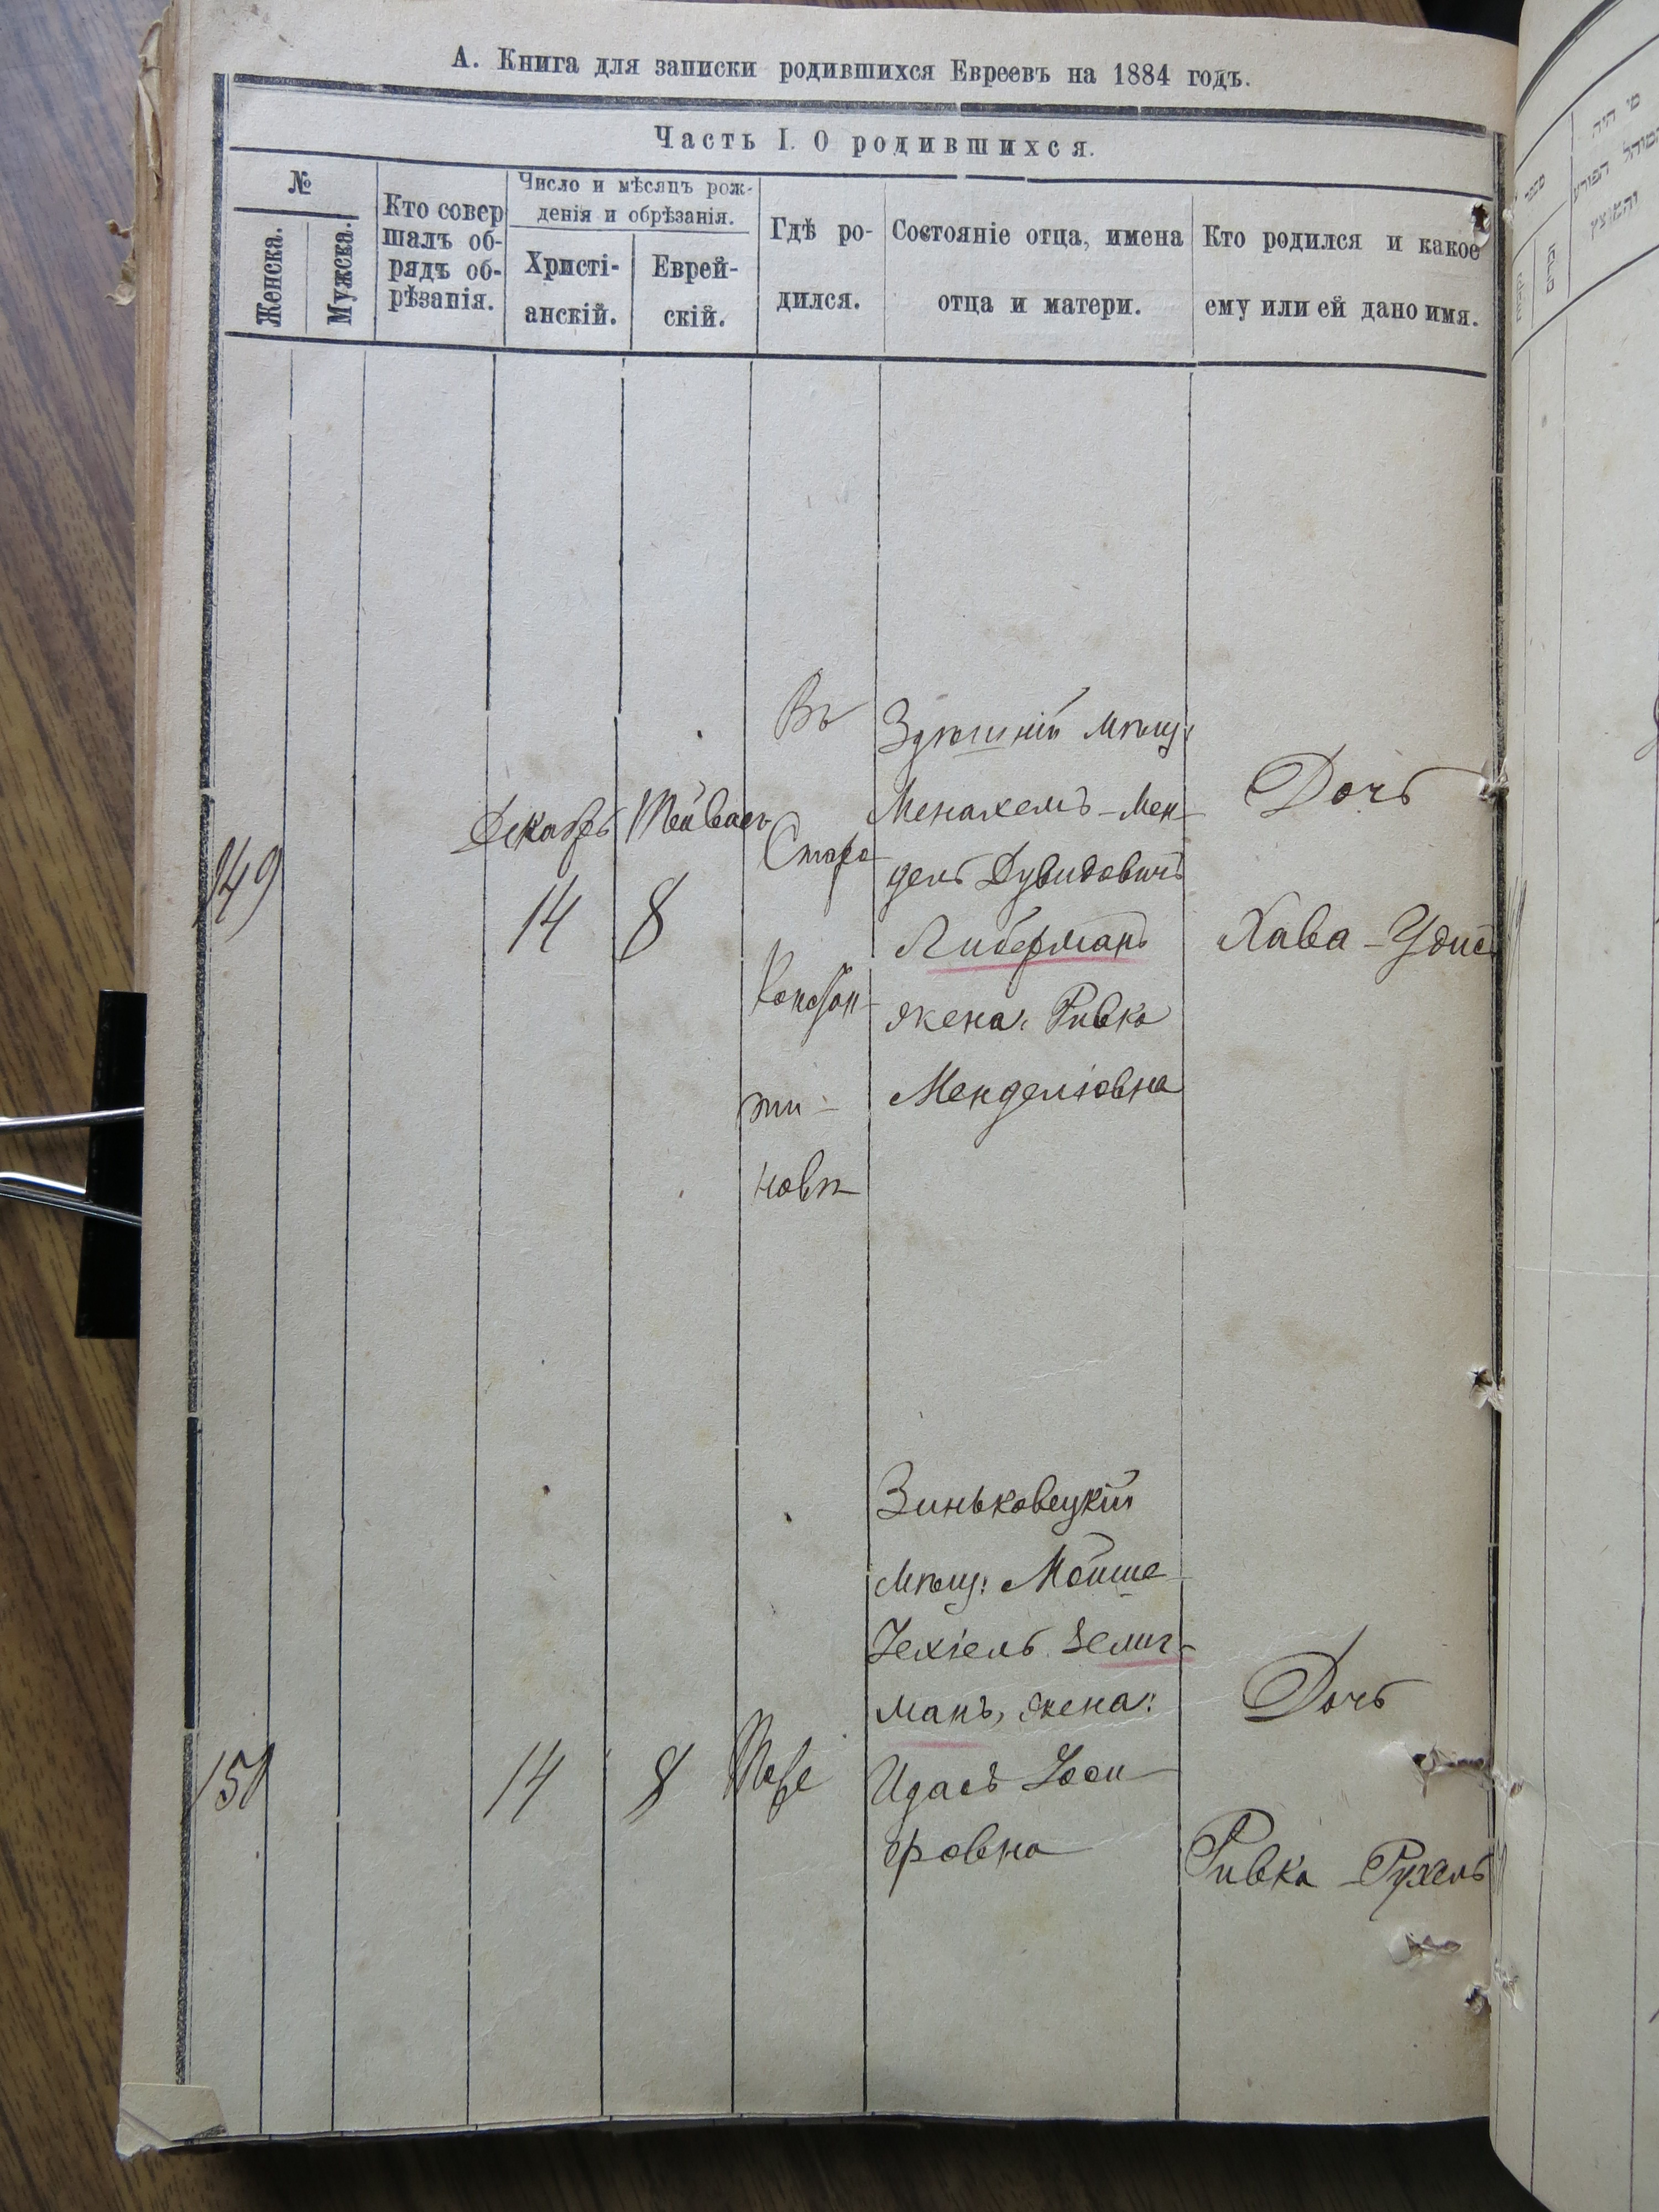 А. Книга для записки родившихся Евреевъ на 1884 годъ.
Часть I. О родившихся.
№
Женска.
Мужска.
Кто совер
шалъ об-
рядъ об-
рѣзанія.
Число и мѣсяцъ рож-
денія и обрѣзанія.
Христі-
анскій.
Еврей-
скій.
Гдѣ ро-
дился.
Состояніе отца, имена
отца и матери.
Кто родился и какое
ему или ей дано имя.
149
Декабрь
14
Тейвасъ
8
Въ
Старо
Констан-
ти-
новѣ
Здѣшній мѣщ:
Менахемъ-Мен-
дель Дувидовичъ
Либерманъ
жена: Ривка
Менделіовна
Дочь
Хава-Удисъ
150
14
8
Тоже
Зиньковецкій
мѣщ: Мойше
Іехіель Зелиг-
манъ, жена:
Идасъ
ровна
Дочь
Ривка-Рухель